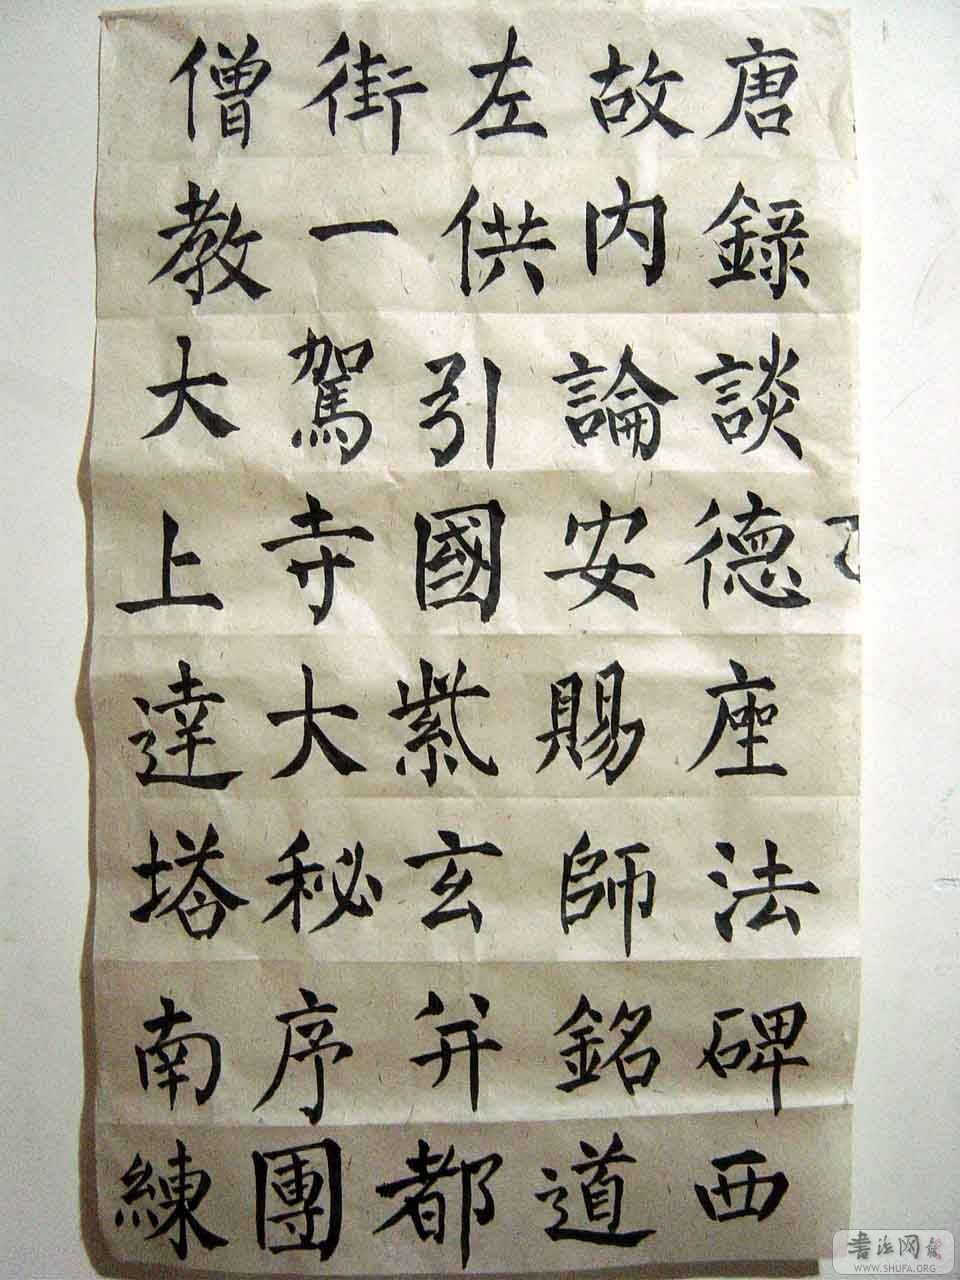 唐故左街僧
錄內供一教
談論引駕大
德安國寺上
座賜紫大達
法師玄秘塔
碑銘并序南
西道都團練
書法网
WWW.SHUFA.ORG